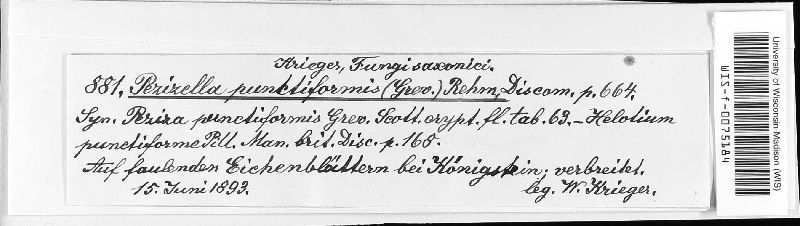 Krieger, Fungi saxonici.
881. Pezizella punctiformis (Grev.) Rehm, Discom. p. 664.
Syn. Peziza punctiformis Grev. Scott. crypt. fl. tab. 63. - Helotium
punctiforme Pill. Man. brit. Disc. p. 165.
Auf faulenden Eichenblättern bei Königstein; verbreitet.
15. Juni 1893. leg. W. Krieger.
University of Wisconsin-Madison (WIS)
WIS-f-0075184